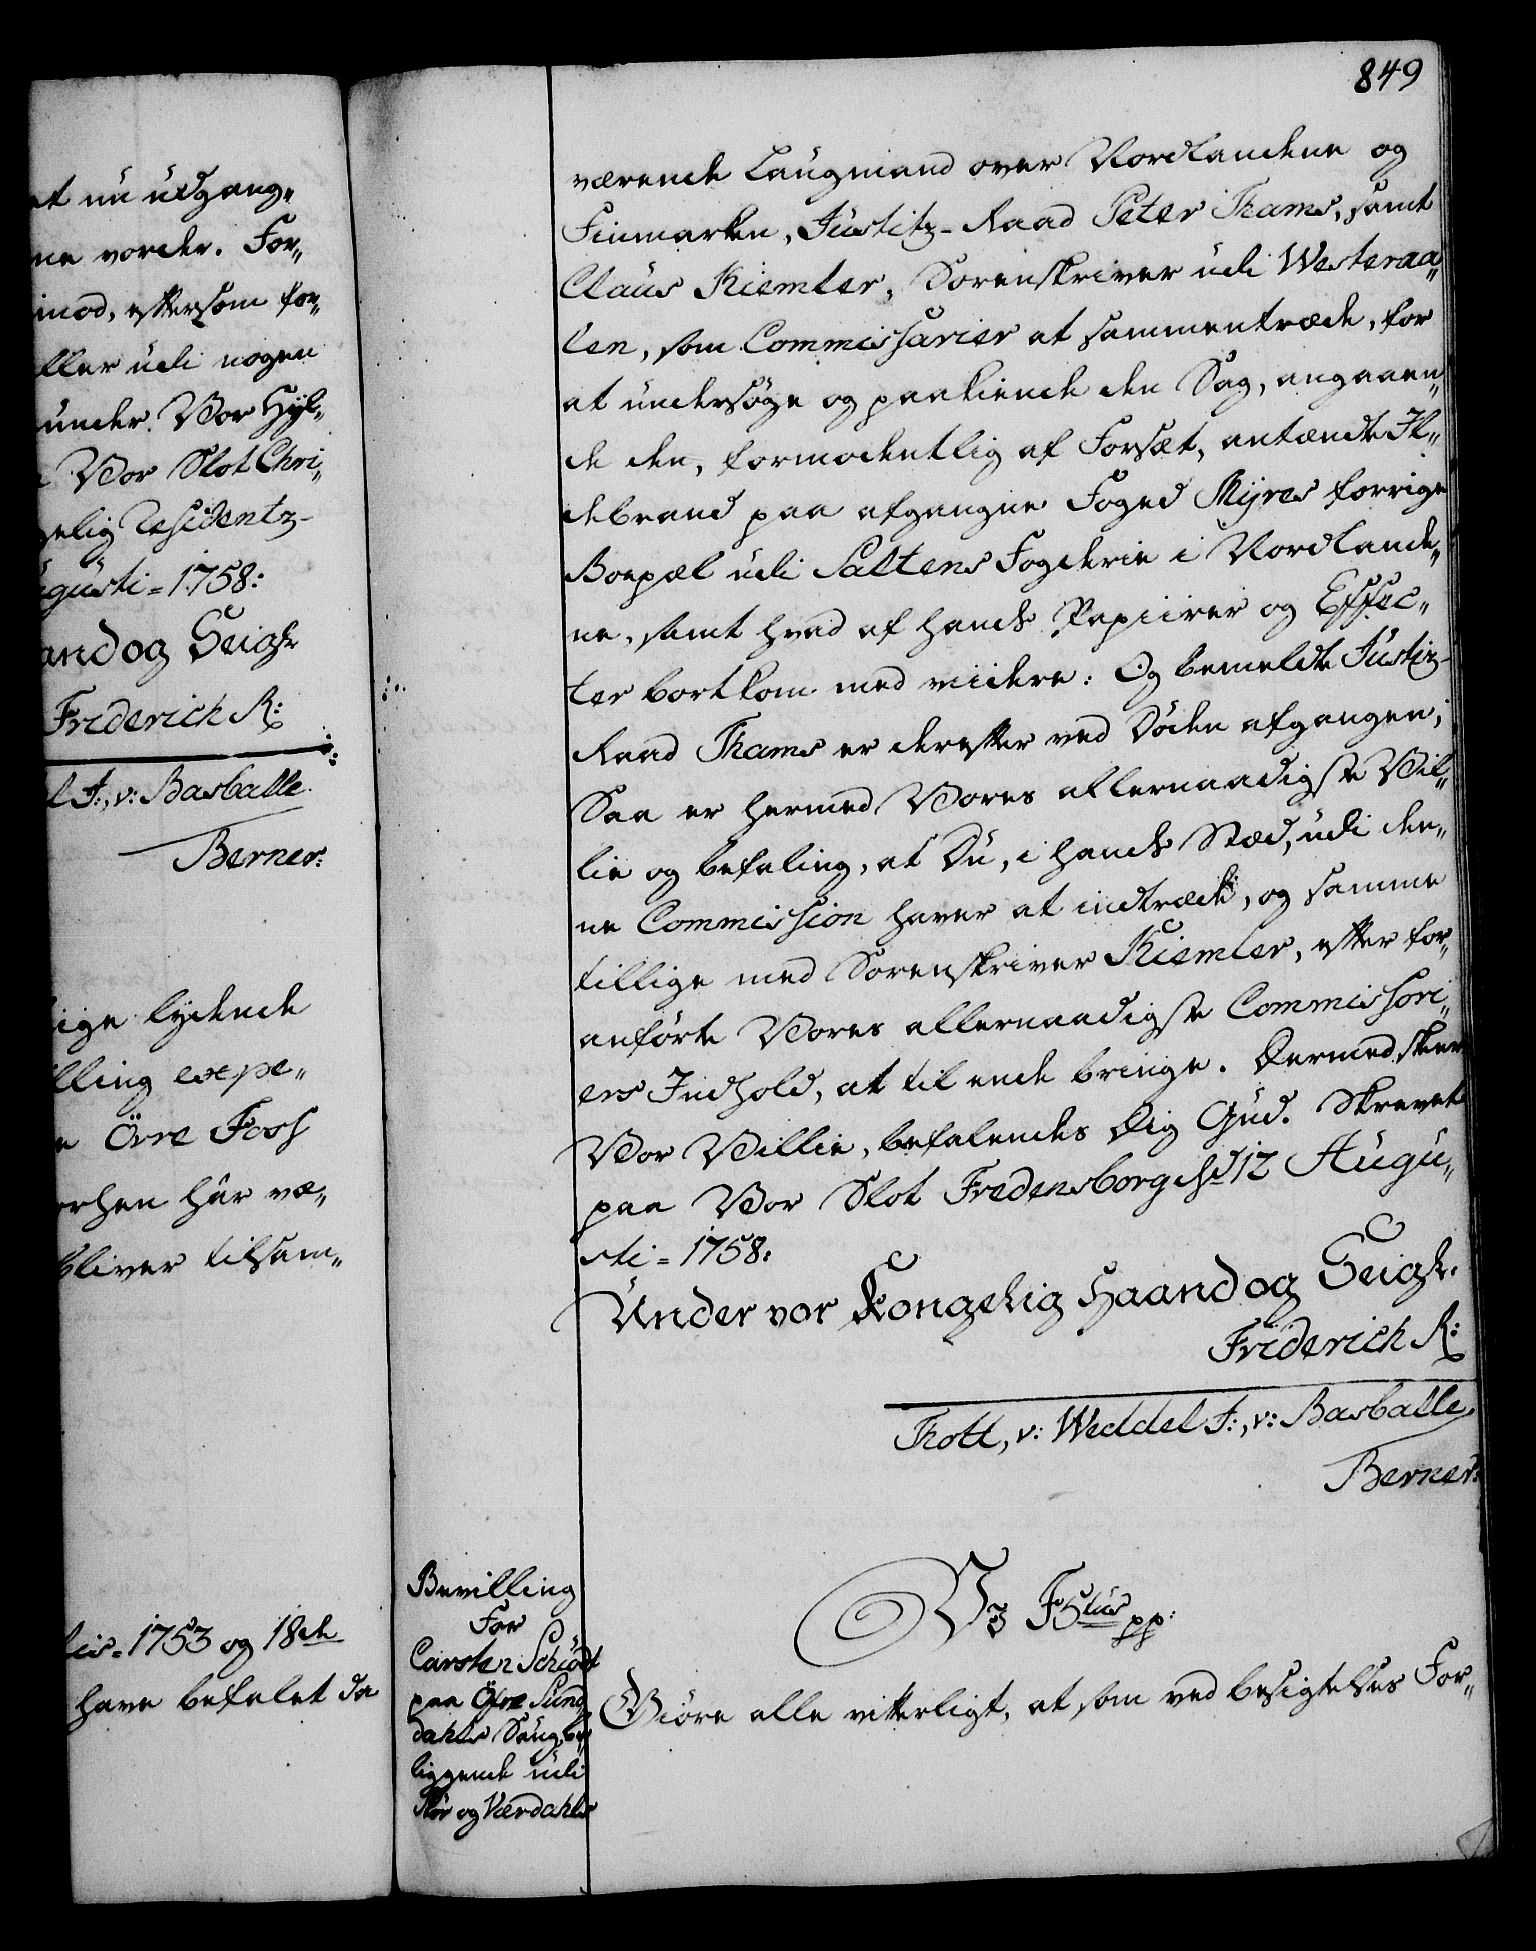 et nu udgang„
ne vorder. For„
imod, eftersom for„
eller udi nogen
under Vor Hyl„
Vor Slot Chri„
gelig Residentz-
Augusti = 1758:
and og Seigl
Friderich R:
l J:, v: Basballe.
Berner:
lige lydende
lling expe„
Övre Foss
forhen har væ„
bliver tilsam„
lis = 1753 og 18de
have befalet da
849
værende Laugmand over Nordlandene og
Finmarken, Justitz-Raad Peter Thams, samt
Claus Kiemler, Sorenskriver udi Westeraa„
len, som Commissarier at sammentræde, for
at undersöge og paakiende den Sag, angaaen„
de den, formodentlig af Forsæt, antændte Il„
debrand paa afgangne Foged Myres forrige
Boepæl udi Saltens Fogderie i Nordlande„
ne, samt hvad af hands Papiirer og Effec„
ter bortkom med viidere: Og bemeldte Justiz-
Raad Thams er derefter ved Döden afgangen;
Saa er hermed Vores allernaadigste Vil„
lie og befaling, at Du, i hands Stæd, udi den„
ne Commission haver at indtræde, og samme
tillige med Sorenskriver Kiemler, efter for„
anförte Vores allernaadigste Commissori„
ers Indhold, at til ende bringe. Dermed skeer
Vor Villie, befalendes Dig Gud. Skrevet
paa Vor Slot Fredensborg d. 12 Augu„
sti = 1758:
Under vor Kongelig Haand og Seigl.
Friderich R:
Thott, v: Weddel J:, v: Basballe.
Berner:
Bevilling
For
Carsten Schiödt
paa Öfre Sund„
dahls Saug, be„
liggende udi
Stör og Værdahls
V3 F5tus pp:
Giöre alle vitterligt, at som ved besigtelses For„